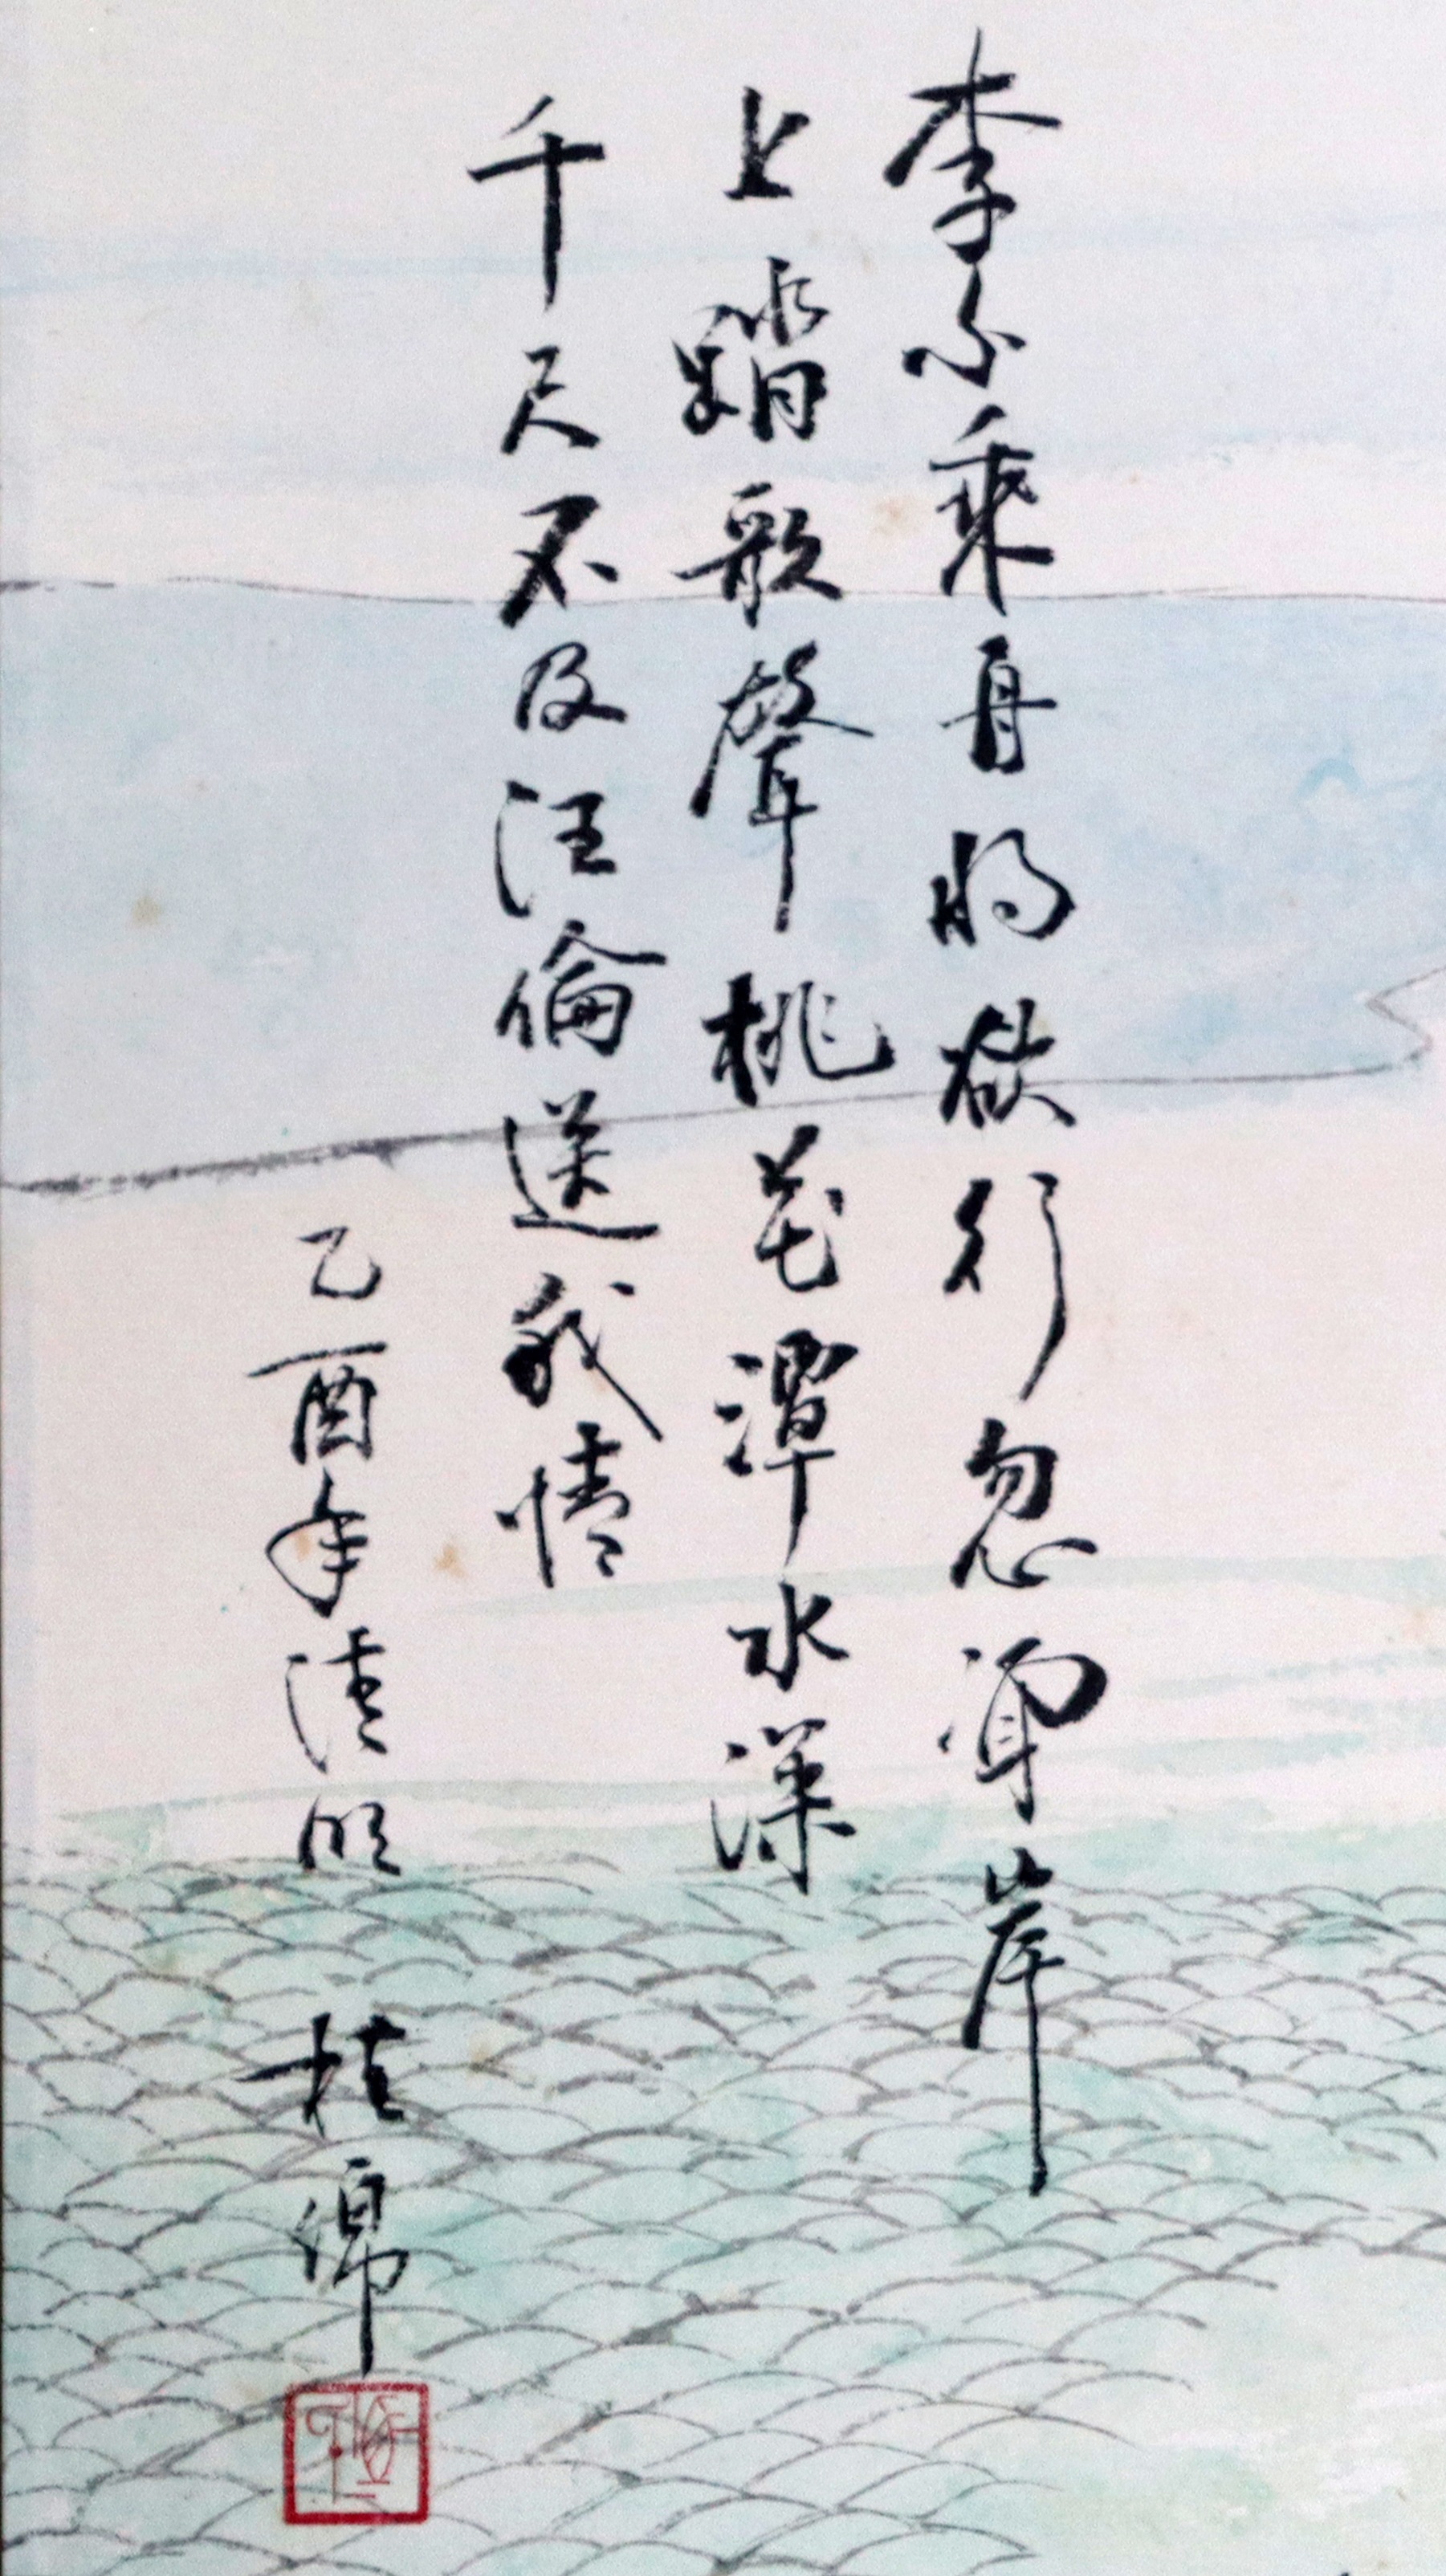 李白乘舟將欲行忽聞岸
上踏歌聲桃花潭水深
千尺不及汪倫送我情
乙酉年清明 桂